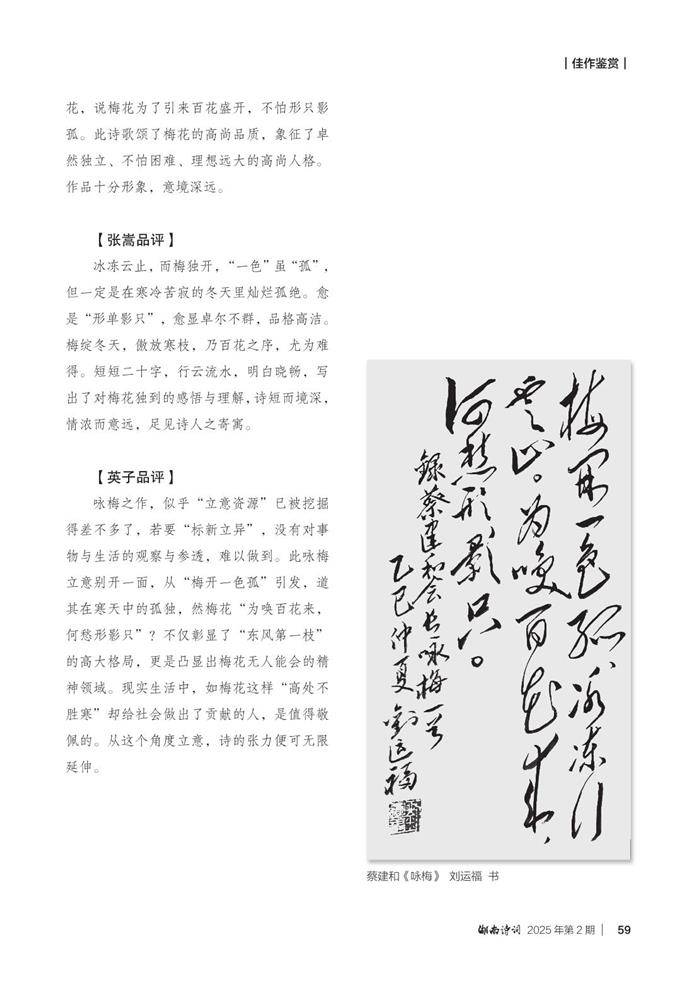 佳作鉴赏
花，说梅花为了引来百花盛开，不怕形只影
孤。此诗歌颂了梅花的高尚品质，象征了卓
然独立、不怕困难、理想远大的高尚人格。
作品十分形象，意境深远。
【张嵩品评】
冰冻云止，而梅独开，“一色”虽“孤”，
但一定是在寒冷苦寂的冬天里灿烂孤绝。愈
是“形单影只”，愈显卓尔不群，品格高洁。
梅绽冬天，傲放寒枝，乃百花之序，尤为难
得。短短二十字，行云流水，明白晓畅，写
出了对梅花独到的感悟与理解，诗短而境深，
情浓而意远，足见诗人之寄寓。
【英子品评】
咏梅之作，似乎“立意资源”已被挖掘
得差不多了，若要“标新立异”，没有对事
物与生活的观察与参透，难以做到。此咏梅
立意别开一面，从“梅开一色孤”引发，道
其在寒天中的孤独，然梅花“为唤百花来，
何愁形影只”？不仅彰显了“东风第一枝”
的高大格局，更是凸显出梅花无人能会的精
神领域。现实生活中，如梅花这样“高处不
胜寒”却给社会做出了贡献的人，是值得敬
佩的。从这个角度立意，诗的张力便可无限
延伸。
梅开一色孤，冰冻行
云止。为唤百花来，
何愁形影只。
錄蔡建和会长咏梅一首
乙巳仲夏 劉运福
蔡建和《咏梅》 刘运福 书
湖南诗词 2025 年第 2 期 59